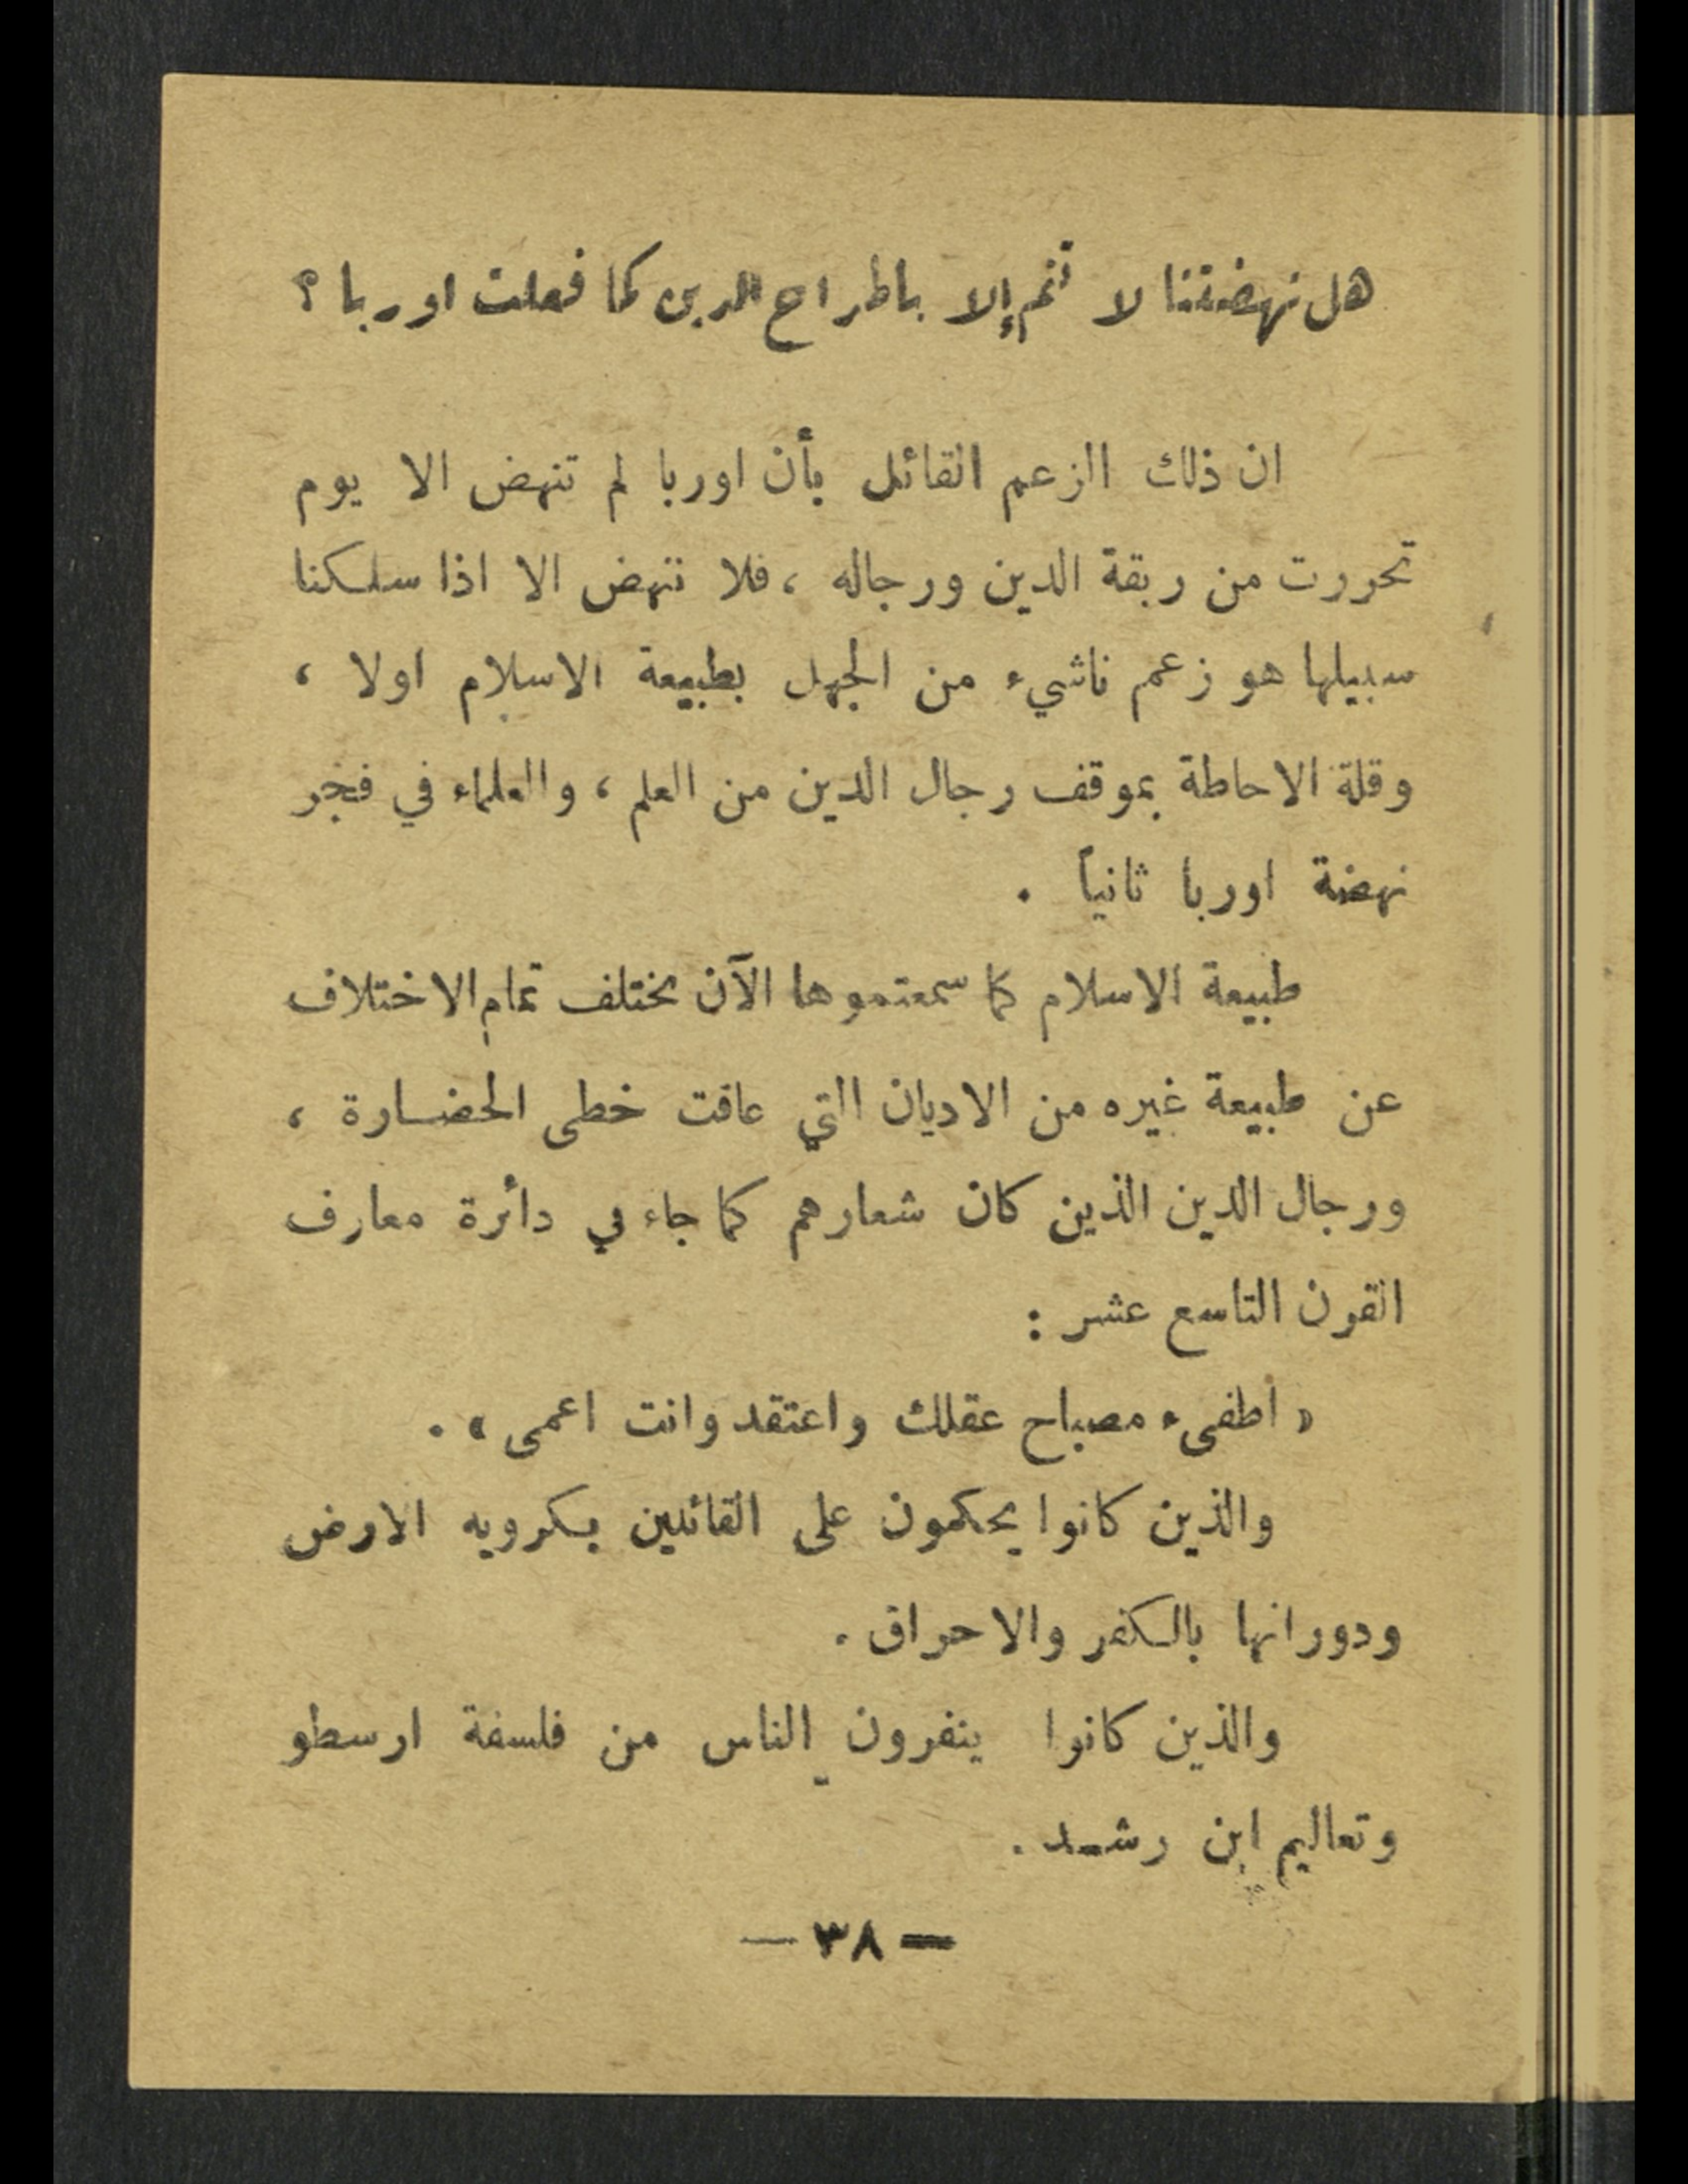 هل نهضتنا لا تتم إلا باطراح الدين كما فعلت اوربا ؟
ان ذلك الزعم القائل بأن اوربا لم تنهض الا يوم
تحررت من ربقة الدين ورجاله ، فلا ننهض الا اذا سلكنا
سبيلها هو زعم ناشيء من الجهل بطبيعة الاسلام اولا ،
وقلة الاحاطة بموقف رجال الدين من العلم ، والعلماء في فجر
نهضة اوربا ثانياً .
طبيعة الاسلام كما سمعتموها الآن تختلف تمام الاختلاف
عن طبيعة غيره من الاديان التي عاقت خطى الحضارة ،
ورجال الدين الذين كان شعارهم كما جاء في دائرة معارف
القرن التاسع عشر :
« اطفىء مصباح عقلك واعتقد وانت اعمى » .
والذين كانوا يحكمون على القائلين بكرويه الارض
ودورانها بالكفر والاحراق .
والذين كانوا ينفرون الناس من فلسفة ارسطو
وتعاليم ابن رشد .
— ٣٨ —